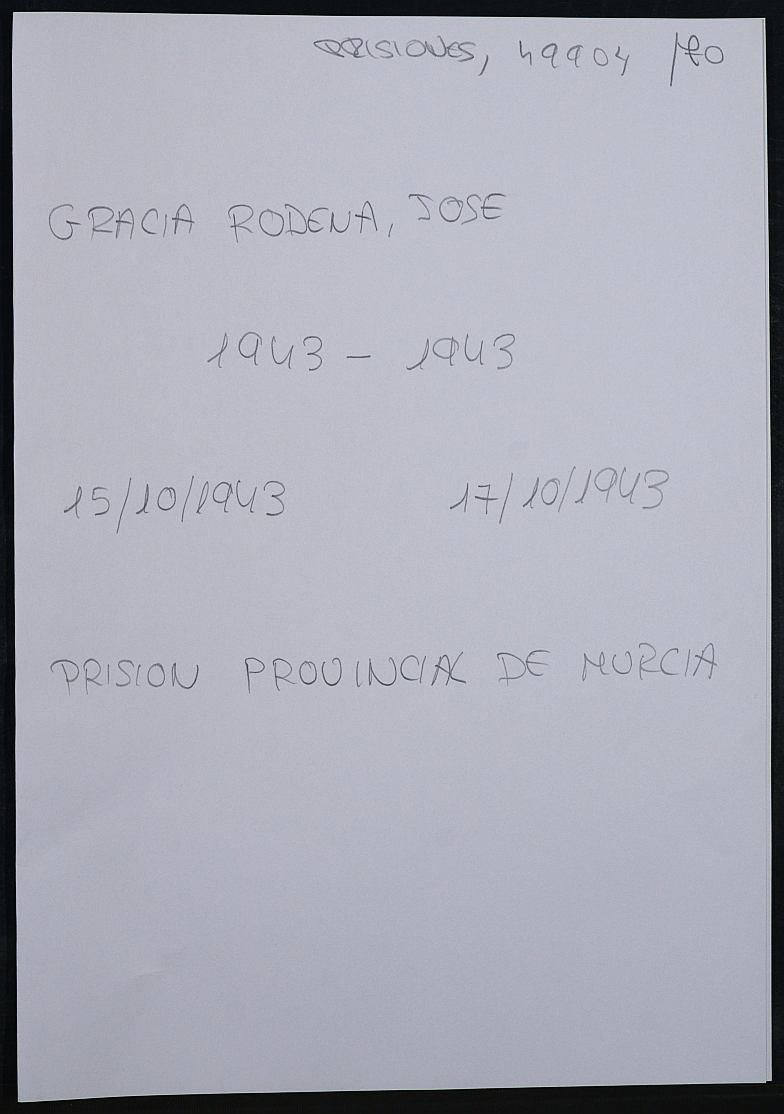 PRISIONES, 49904 /70
GRACIA RODENA, JOSE
1943 - 1943
15/10/1943 17/10/1943
PRISION PROVINCIAL DE MURCIA